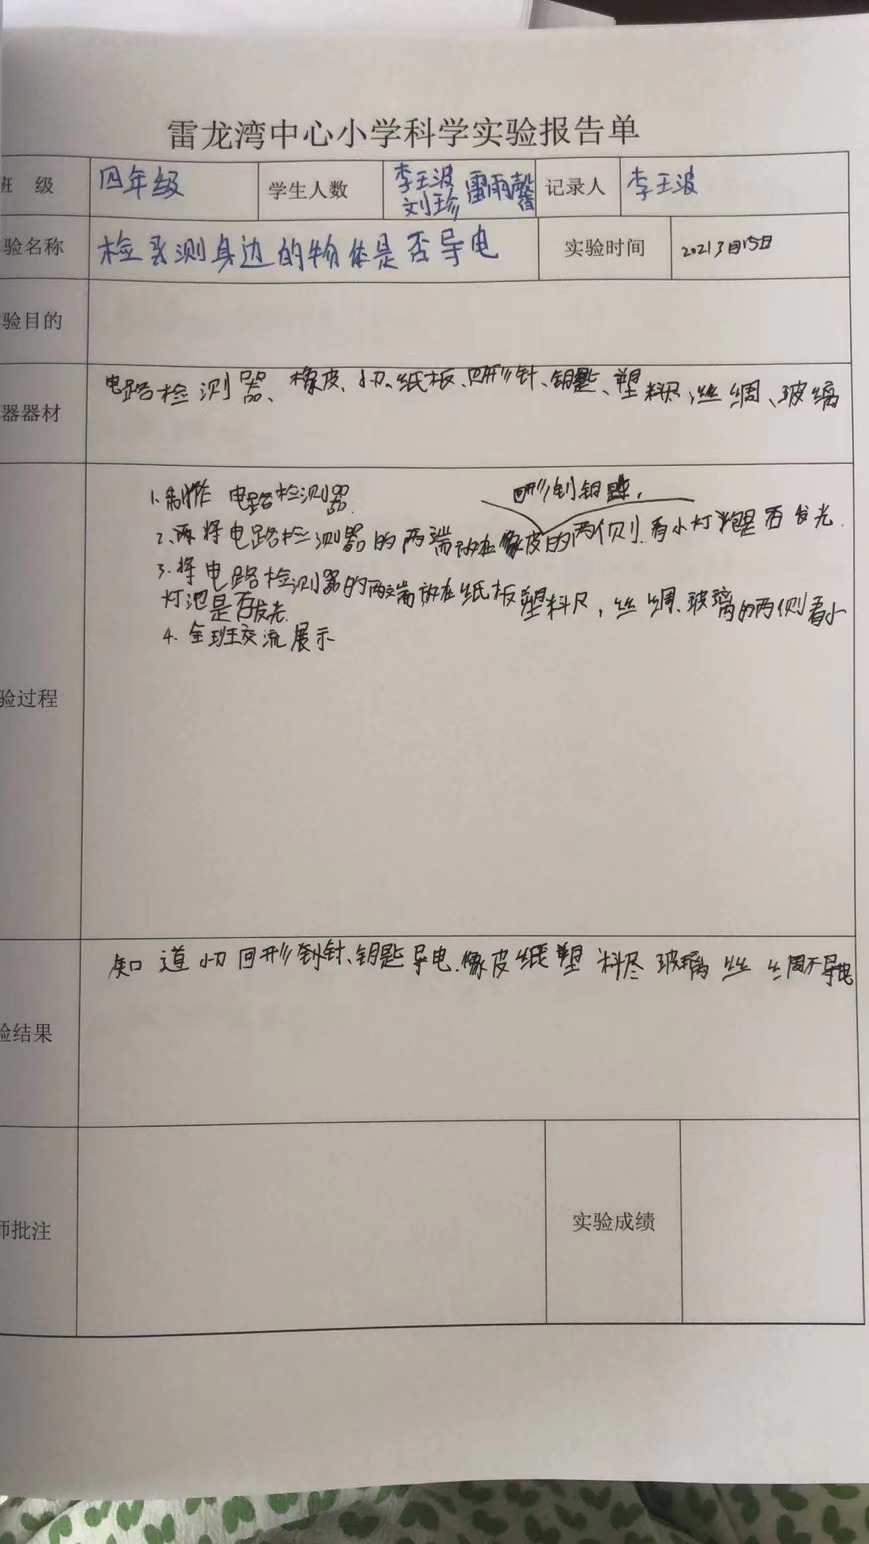 雷龙湾中心小学科学实验报告单
班 级 四年级 学生人数 李王波 雷雨馨 刘珍 记录人 李王波
验名称 检测身边的物体是否导电 实验时间 2021 3月15日
验目的
器器材 电路检测器、橡皮、小刀、纸板、回形针、钥匙、塑料尺,丝绸、玻璃
1.制作电路检测器.
回形针钥匙,
2.将电路检测器的两端放在橡皮的两侧.看小灯泡是否发光.
3.将电路检测器的两端放在纸板塑料尺,丝绸、玻璃的两侧看小
灯泡是否发光.
4.全班交流展示
验过程
知道小刀回形针、钥匙导电.橡皮纸塑料尽玻璃丝绸不导电
验结果
师批注 实验成绩